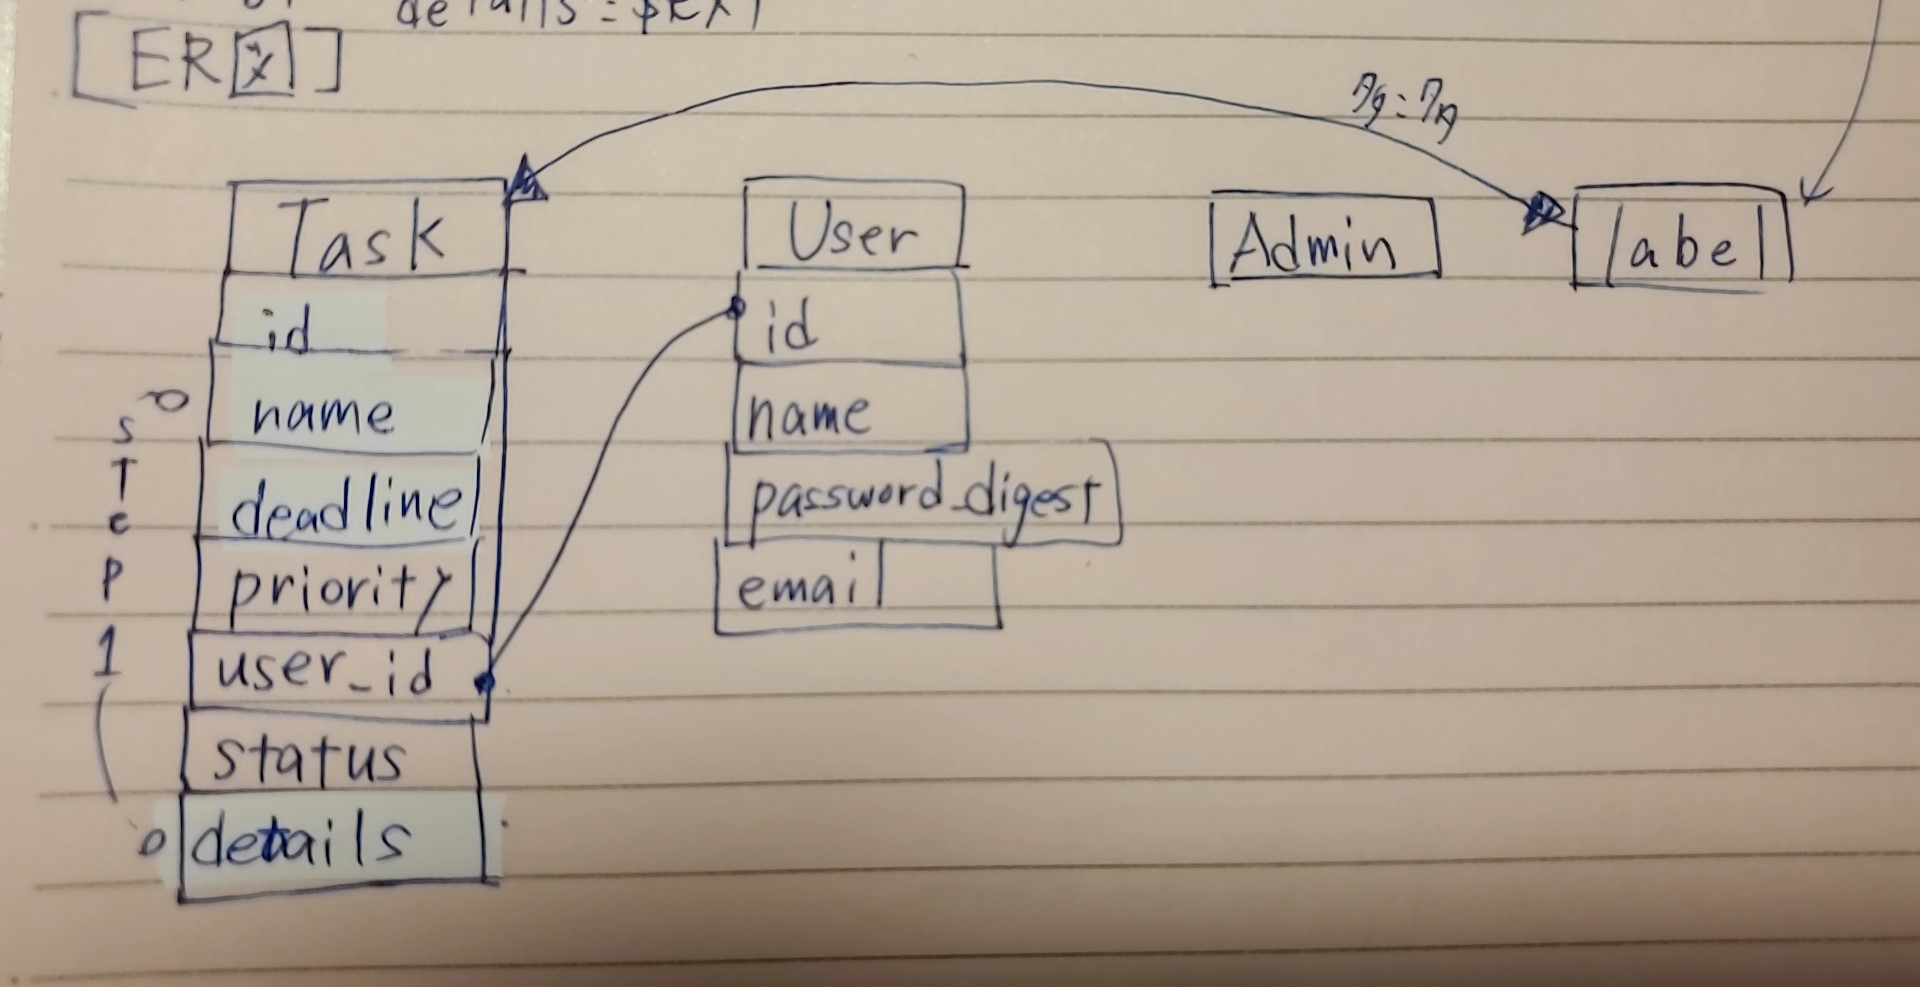 details :
[ER図]
多:多
Task
id
name
deadline
priority
user_id
status
details
User
id
name
password_digest
email
Admin
label
STeP1